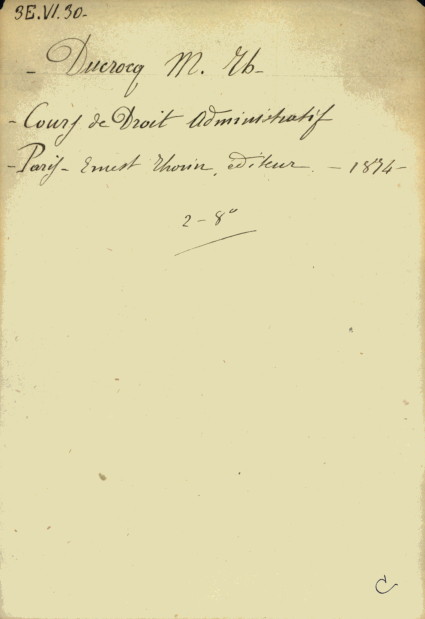 3E.VI.30-
- Ducrocq M. Th-
- Cours de Droit Administratif
- Paris - Ernest Thorin, éditeur. - 1874-
2-8°
C